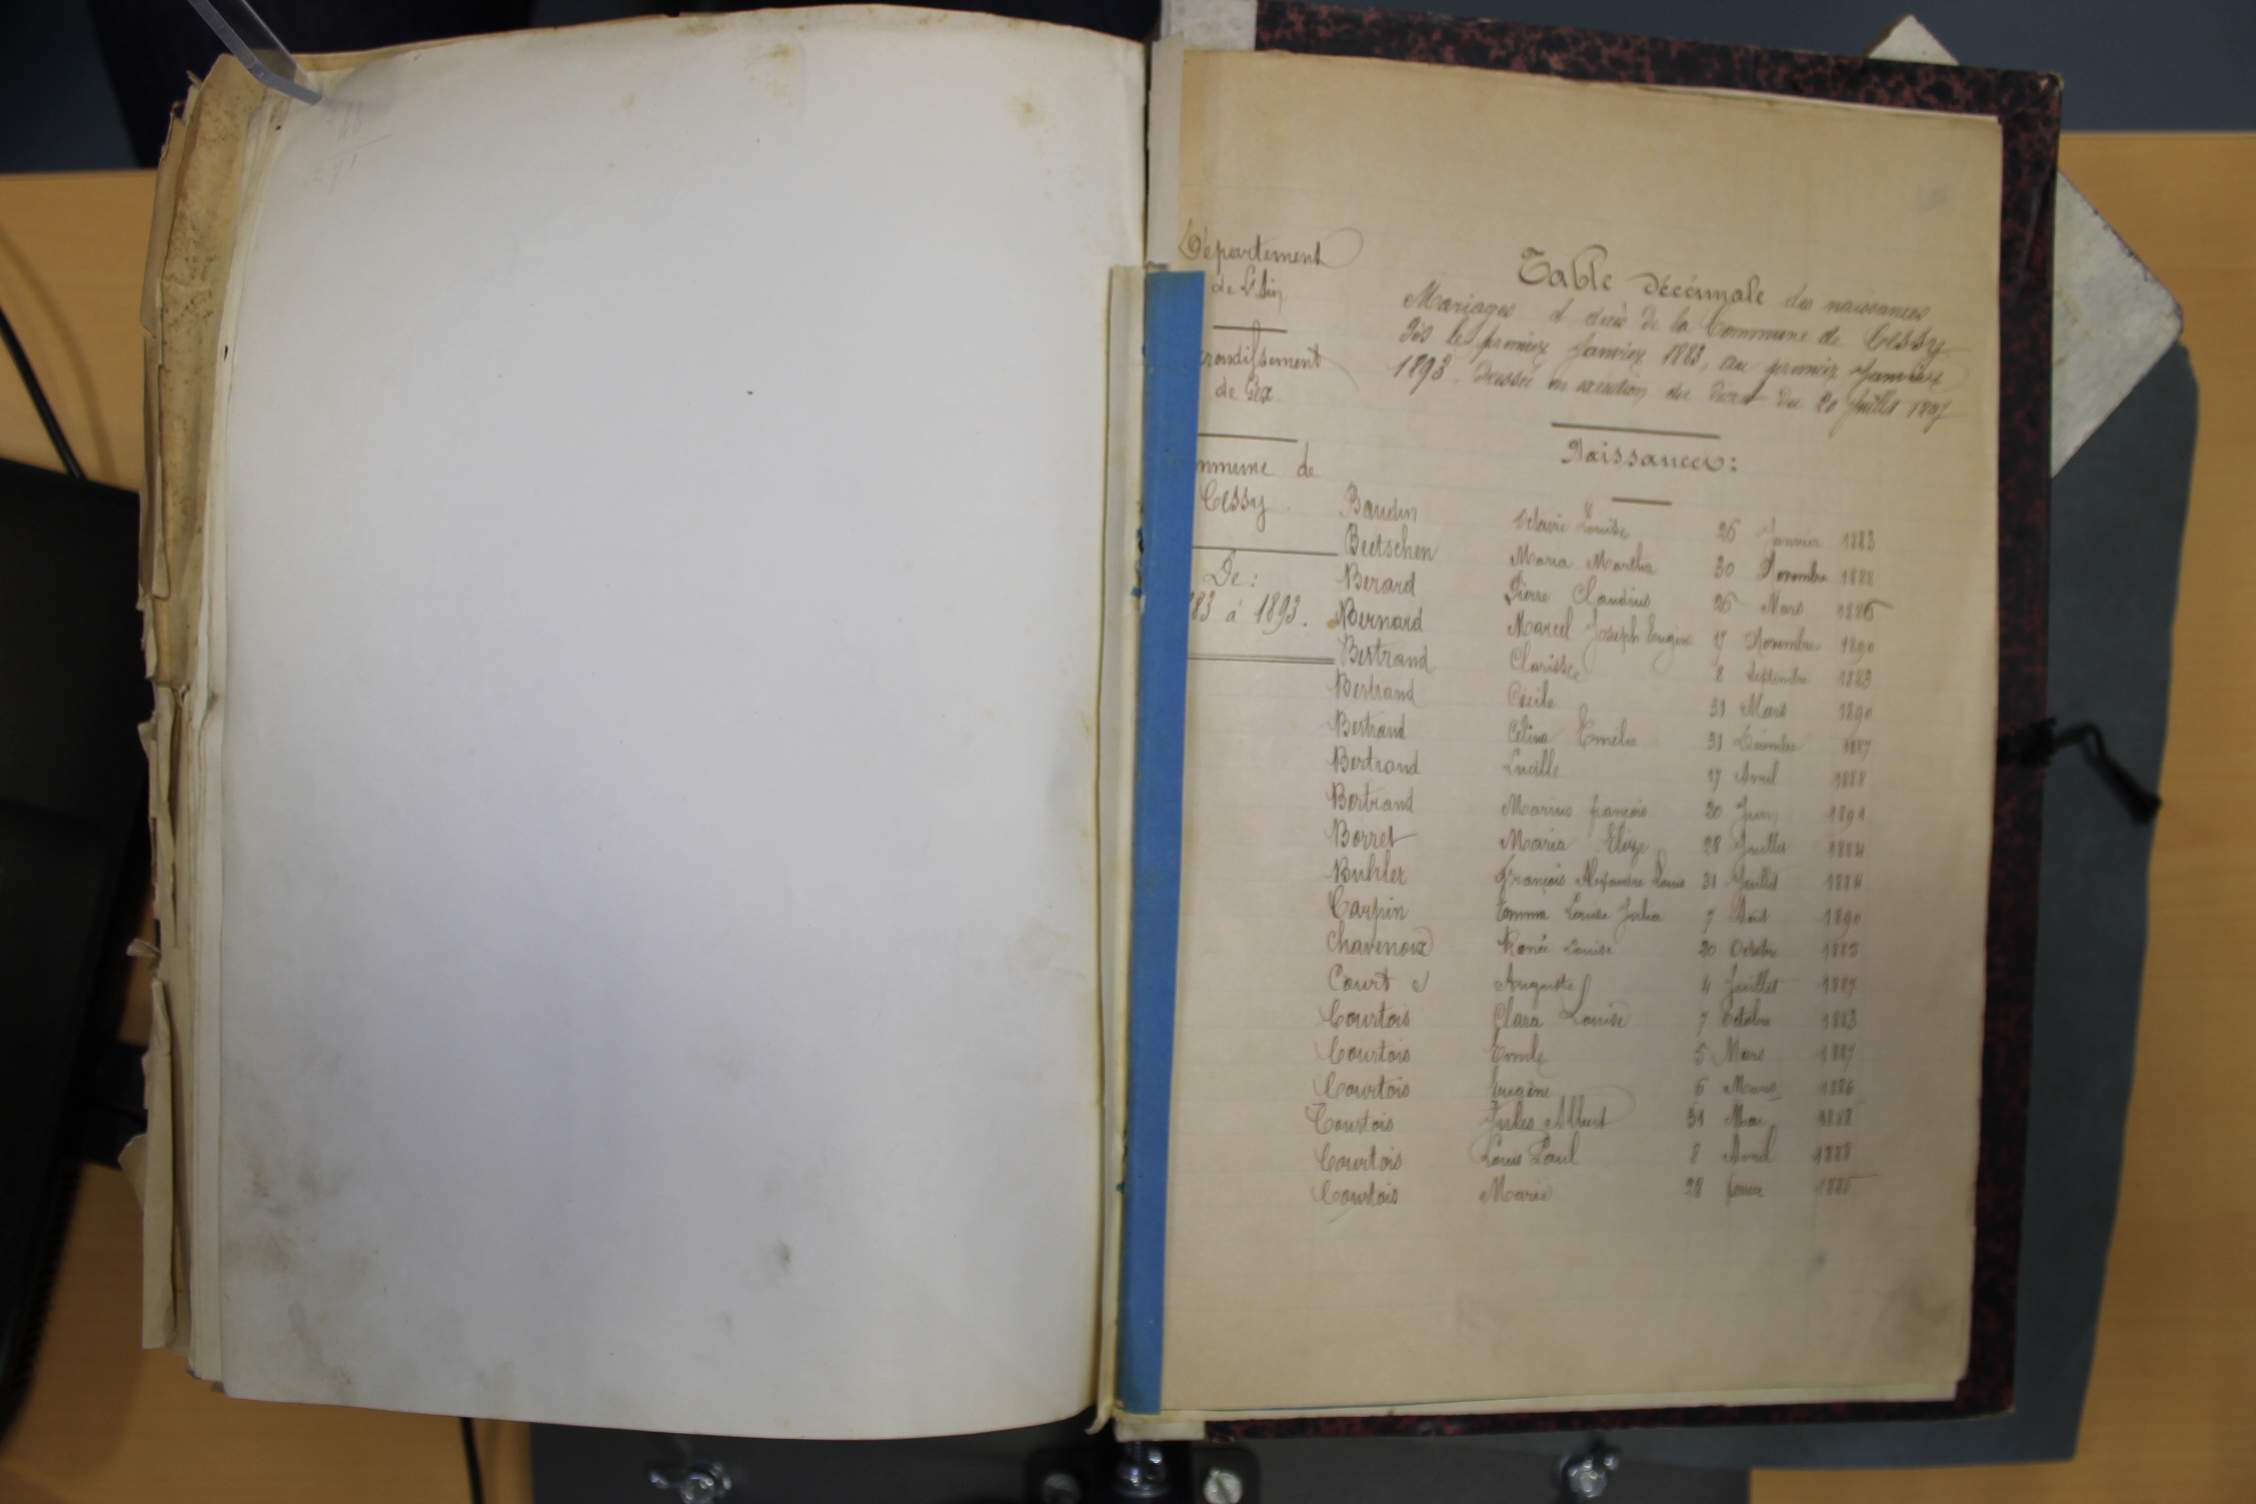 Département
de l'Ain
rrondissement
de Gex
mmune de
Cessy
De :
83 à 1893.
Table Décennale des naissances
Mariages et décès de la Commune de Cessy
Dès le premier Janvier 1883, au premier Janvier
1893. Dressée en exécution du Décret du 20 Juillet 1807
Naissances :
Baudin Louise 26 Janvier 1883
Beetschen Maria Martha 30 Novembre 1888
Berard Pierre Claudius 26 Mars 1886
Bernard Marcel Joseph Eugène 17 Novembre 1890
Bertrand Clarisse 8 Septembre 1883
Bertrand Cécile 31 Mars 1890
Bertrand Célina Emélie 31 Décembre 1887
Bertrand Lucille 17 Avril 1888
Bertrand Marius françois 20 Juin 1891
Borret Maria Elise 28 Juillet 1884
Buhler François Alexandre Louis 31 Juillet 1884
Carpin Emma Louise Julia 7 Août 1890
Chavenoix Renée Louise 20 Octobre 1885
Court Auguste 4 Juillet 1887
Courtois Clara Louise 7 Octobre 1883
Courtois Emile 5 Mars 1887
Courtois Eugène 6 Mars 1886
Courtois Jules Albert 31 Mai 1888
Courtois Louis Paul 8 Avril 1888
Courtois Marie 28 1885